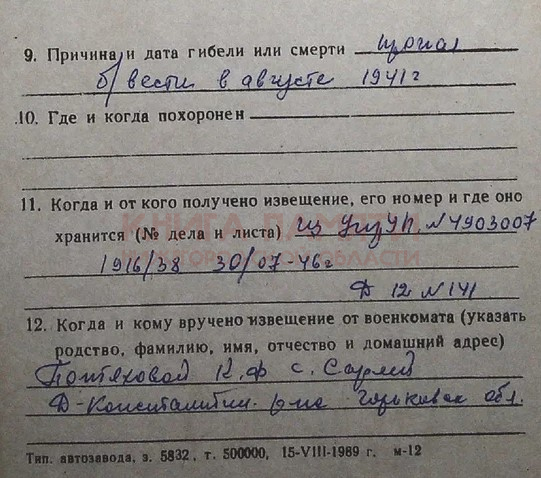 9. Причина и дата гибели или смерти пропал
б/вести в августе 1941 г
10. Где и когда похоронен
11. Когда и от кого получено извещение, его номер и где оно
хранится (№ дела и листа) из УпУП. N 4903007
КНИГА ПАМЯТИ
1916/38 30/07-46 г
Д 12 N 141
12. Когда и кому вручено извещение от военкомата (указать
родство, фамилию, имя, отчество и домашний адрес)
К.Ф с. Сарлей
Д-Константин. р-на Горьковск обл.
Тип. автозавода, з. 5832, т. 500000, 15-VIII-1989 г. м-12